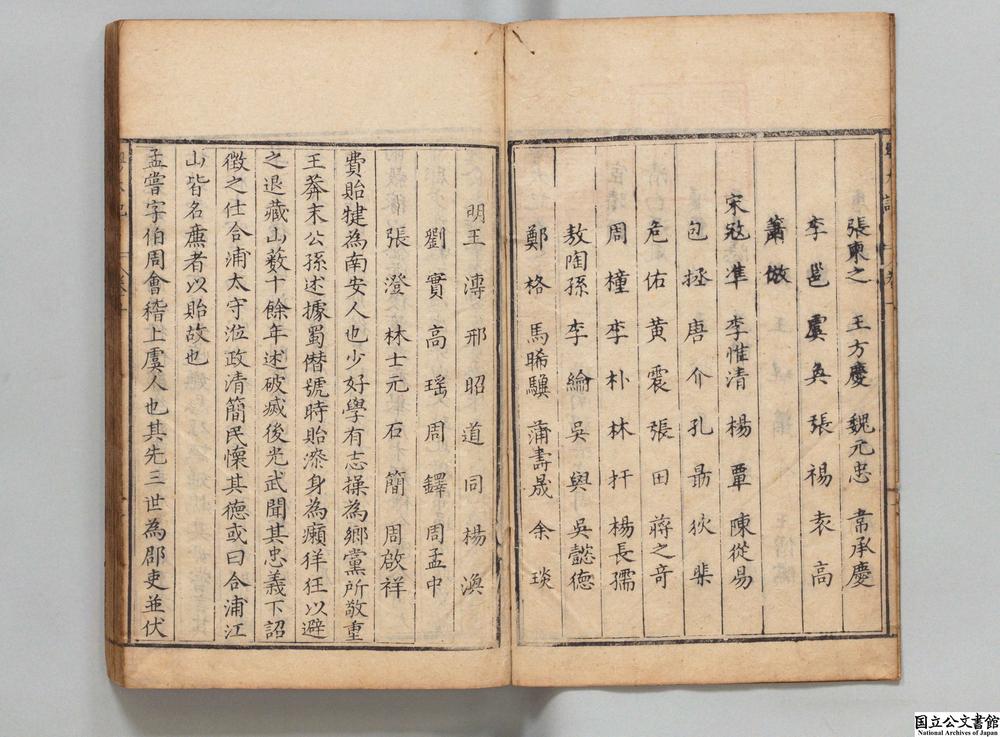 張柬之 王方慶 魏元忠 韋承慶
李邕 虞奐 張裼 袁高
蕭倣
宋 寇準 李惟清 楊覃 陳從易
包拯 唐介 孔勗 狄棐
危佑 黃震 張田 蔣之奇
周橦 李朴 林扞 楊長孺
敖陶孫 李綸 吳興 吳懿德
鄭格 馬晞驥 蒲壽晟 余琰
明 王溥 邢昭 道同 楊渙
劉實 高瑤 周鐸 周孟中
張澄 林士元 石簡 周啟祥
費貽犍為南安人也少好學有志操為鄉黨所敬重
王莽末公孫述據蜀僭號時貽漆身為癩佯狂以避
之退藏山藪十餘年述破滅後光武聞其忠義下詔
徵之仕合浦太守涖政清簡民懷其德或曰合浦江
山皆名廉者以貽故也
孟嘗字伯周會稽上虞人也其先三世為郡吏並伏
国立公文書館
National Archives of Japan